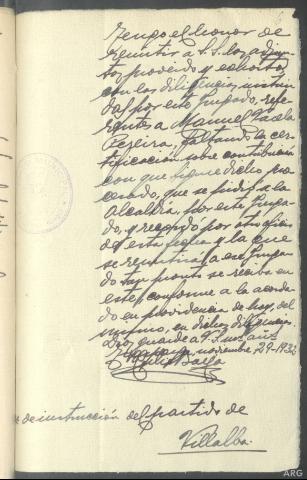 Tengo el honor de
remitir a S.S. los adjun-
tos proveido y exhorto,
con las diligencias instrui-
das por este Juzgado, refe-
rentes a Manuel Varela
Pereira, faltando la cer-
tificación sobre contribución
con que figure dicho pro-
cesado, que se pidió a la
Alcaldía, por este Juzga-
do, y recordó por otro oficio
de esta fecha y la que
se remitirá a ese Juzga-
do tan pronto se reciba en
este, conforme a lo acorda-
do en providencia de hoy, del
mismo, en dichas diligencias.
Dios guarde a V.S. ms. añs.
noviembre 29-1932
de instrucción del partido de
Villalba.
ARG